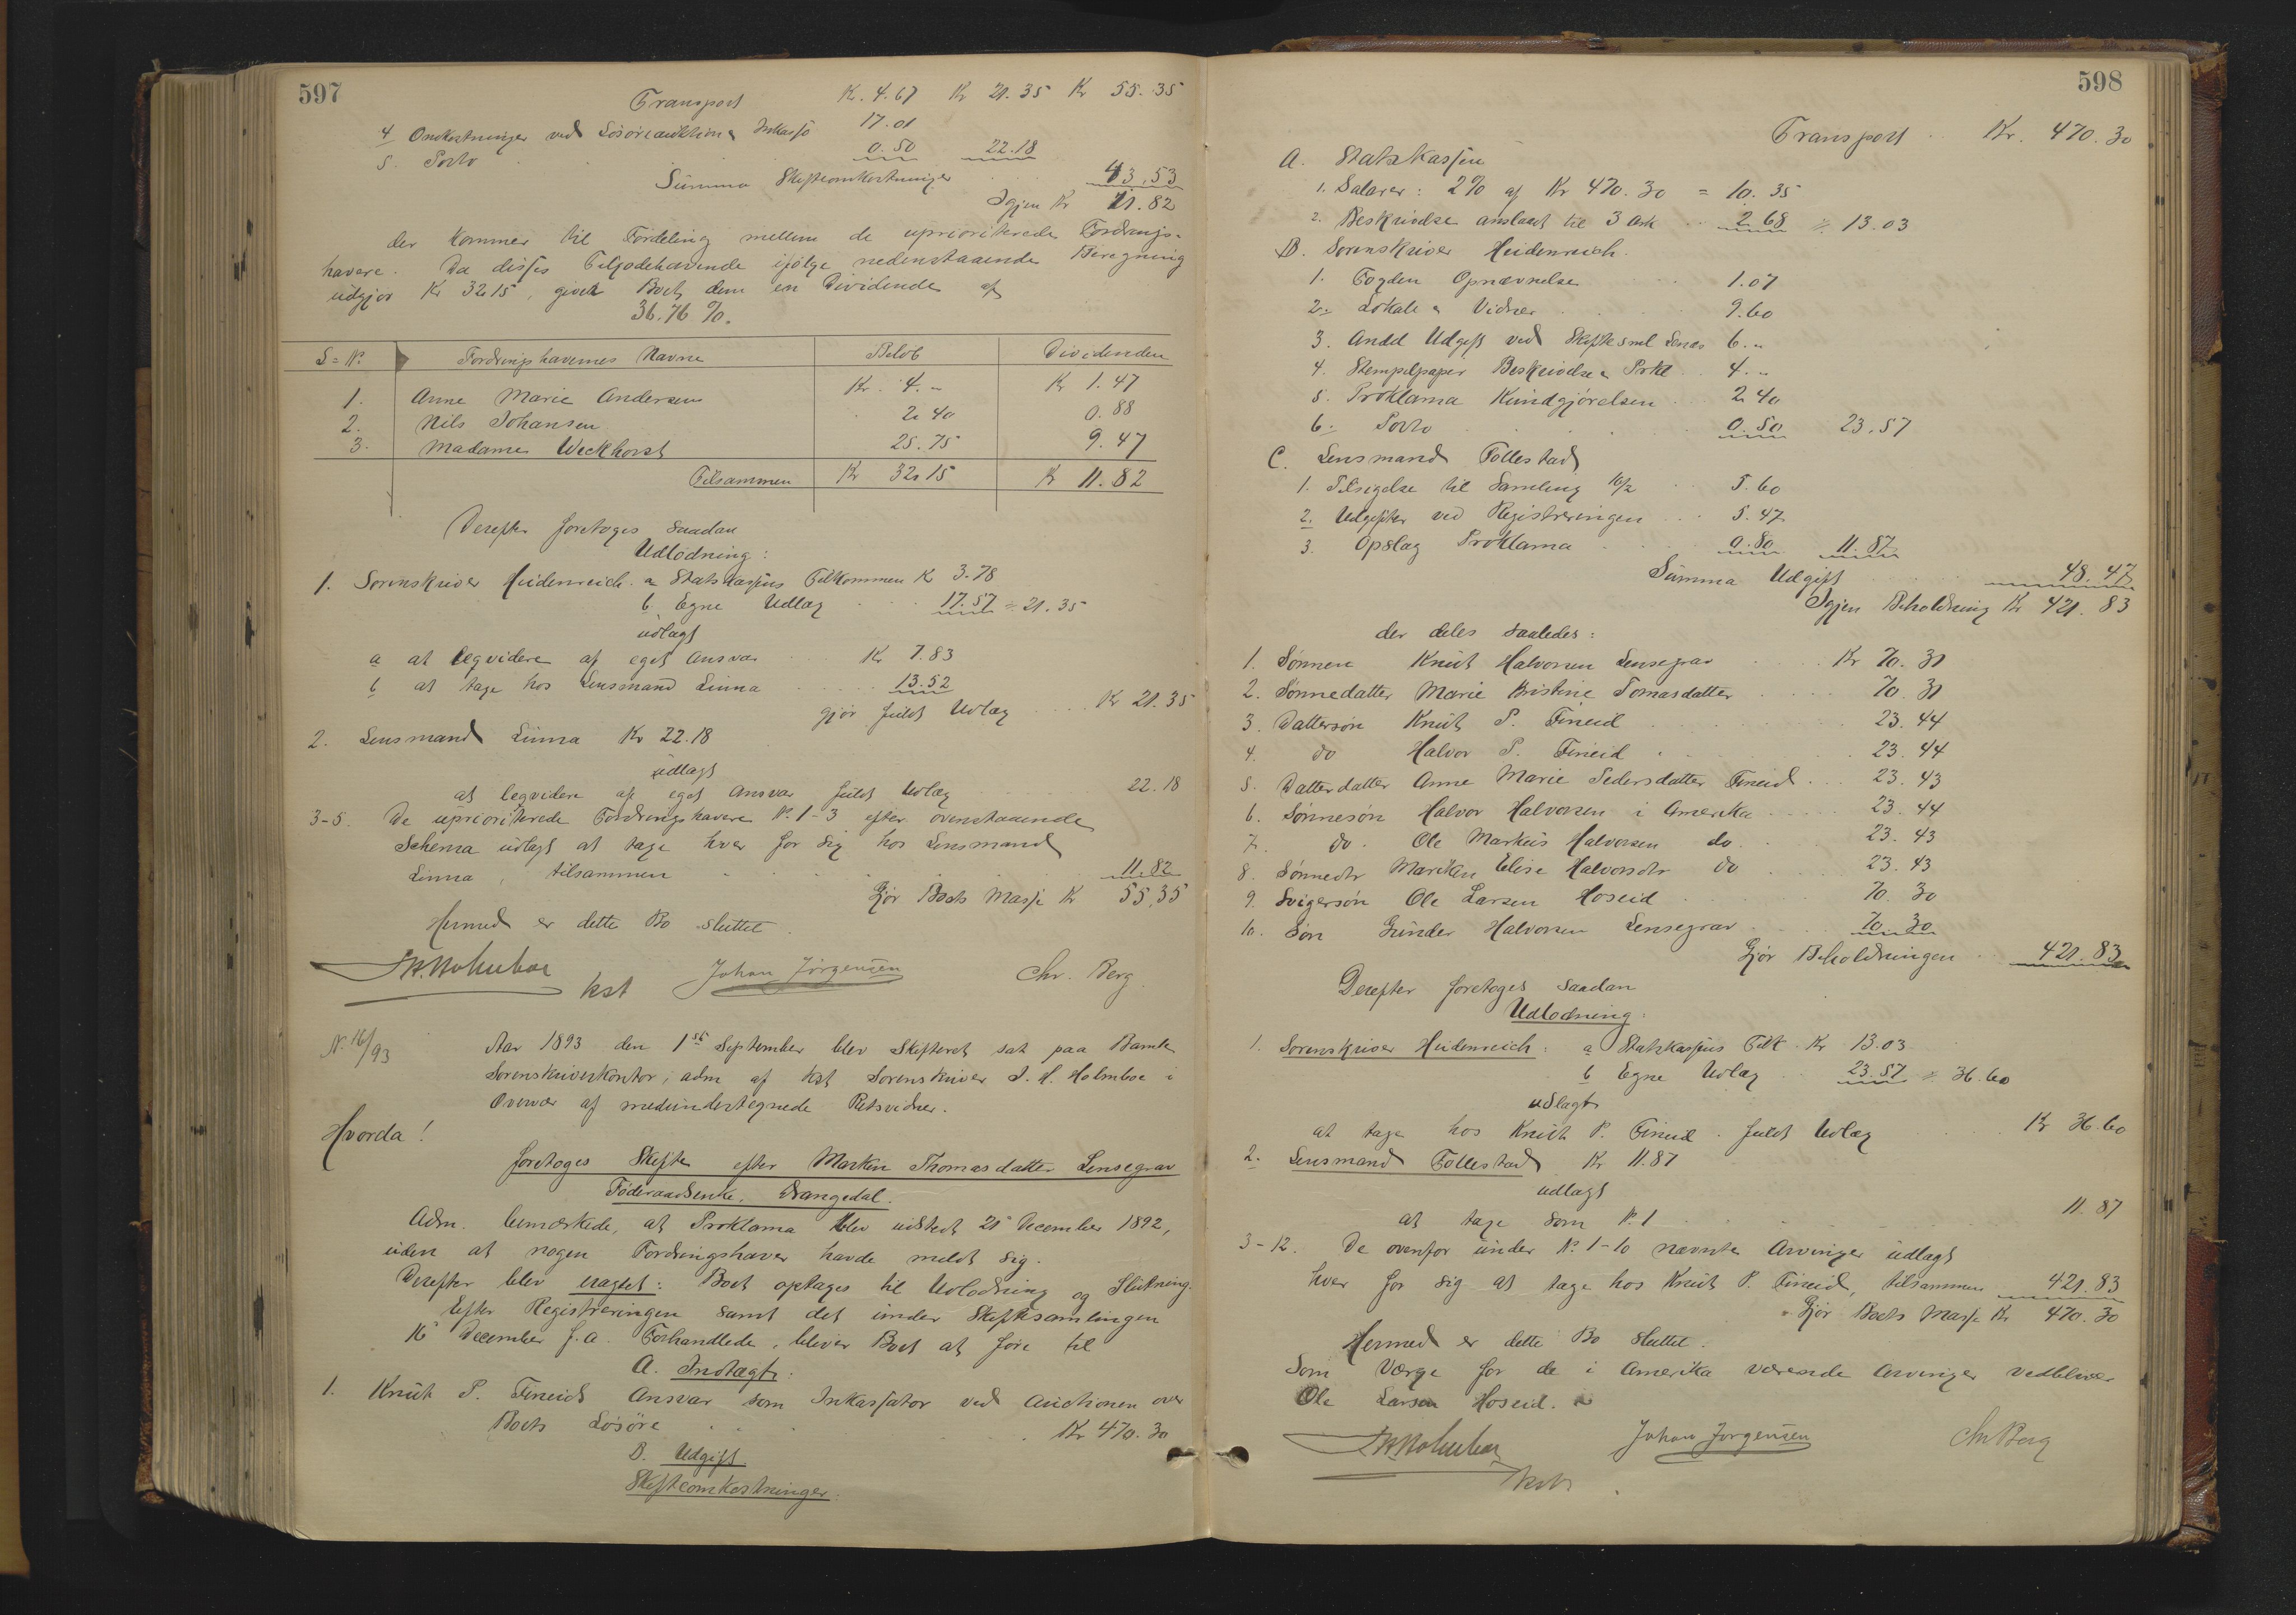 597
Transport Kr. 4.67 Kr 21.35 Kr 55.35
4 Omkostninger ved Løsøreauktion & Inkasso 17.01
5. Porto 0.50 22.18
Summa Skifteomkostninger 43.53
Igjen Kr 11.82
der kommer til Fordeling mellem de uprioriterede Fordrings-
havere. Da disses Tilgodehavende ifølge nedenstaaende Beregning
udgjør Kr 32.15, giver Boet dem en Dividende af
36.76 %.
L=No Fordringshavernes Navne Beløb Dividenden
1. Anne Marie Andersen Kr. 4.- Kr 1.47
2. Nils Johansen 2.40 0.88
3. Madame Weckhorst 25.75 9.47
Tilsammen Kr 32.15 Kr 11.82
Derefter foretoges saadan
Udlodning:
1. Sorenskriver Heidenreich. a Statskassens Tilkommen Kr 3.78
b Egne Udlæg 17.57 = 21.35
udlagt
a at leqvidere af eget Ansvar Kr 7.83
b at tage hos Lensmand Linna 13.52
gjør fuldt Udlæg Kr 21.35
2. Lensmand Linna Kr 22.18
udlagt
at leqvidere af eget Ansvar fuldt Udlæg 22.18
3-5. De uprioriterede Fordringshavere No 1-3 efter ovenstaaende
Schema udlagt at tage hver for sig hos Lensmand
Linna, tilsammen 11.82
Gjør Boets Masse Kr 55.35
Hermed er dette Bo sluttet.
J.H. Holmboe kst Johan Jørgensen Chr. Berg
N. 16/93 Aar 1893 den 1ste September blev Skifteret sat paa Bamle
Sorenskriverkontor, adm af kst. Sorenskriver J. H. Holmboe i
Overvær af medundertegnede Retsvidner.
Hvorda!
foretoges Skifte efter Marken Thomasdatter Lensegrav
Føderaadsenke. Drangedal.
Adm. bemærkede, at Proklama blev udstedt 21 December 1892,
uden at nogen Fordringshaver havde meldt sig.
Derefter blev eragtet: Boet optages til Udlodning og Slutning.
Efter Registreringen samt det under Skiftesamlingen
16 December f.a. Forhandlede, bliver Boet at føre til
A. Indtægt:
1. Knut P. Fineids Ansvar som Inkassator ved Auctionen over
Boets Løsøre Kr 470.30
B. Udgift
Skifteomkostninger:
598
Transport Kr. 470.30
A. Statskassen
1. Salarer: 2% af Kr 470.30 = 10.35
2. Beskrivelse anslaaet til 3 Ark 2.68 = 13.03
B. Sorenskriver Heidenreich.
1. Fogden Opnævnelse 1.07
2. Lokale & Vidner 9.60
3. Andel Udgift ved Skiftesml Lensm 6.-
4. Stempelpapir Beskrivelse & Prkl. 4.-
5. Proklama Kundgjørelsen 2.40
6. Porto 0.50 23.57
C. Lensmand Tollestad
1. Tilsigelse til Samling 16/12 5.60
2. Udgifter ved Registreringen 5.47
3. Opslag Proklama 0.80 11.87
Summa Udgift 48.47
Igjen Beholdning Kr 421.83
der deles saaledes:
1. Sønnen Knut Halvorsen Lensegrav Kr 70.31
2. Sønnedatter Marie Kristine Tomasdatter 70.31
3. Dattersøn Knut P. Fineid 23.44
4. do Halvor P. Fineid 23.44
5. Datterdatter Anne Marie Pedersdatter Fineid 23.43
6. Sønnesøn Halvor Halvorsen i Amerika 23.44
7. do. Ole Markus Halvorsen do. 23.43
8. Sønnedtr Mariken Elise Halvorsdtr do 23.43
9. Svigersøn Ole Larsen Hoseid 70.30
10. Søn Gunder Halvorsen Lensegrav 70.30
Gjør Beholdningen 421.83
Derefter foretoges saadan
Udlodning:
1. Sorenskriver Heidenreich: a Statskassens Tilk. Kr 13.03
b Egne Udlæg 23.57 = 36.60
udlagt
at tage hos Knut P. Fineid. fuldt Udlæg Kr 36.60
2. Lensmand Tollestad Kr 11.87
udlagt
at tage som No 1 11.87
3-12. De ovenfor under No 1-10 nævnte Arvinger udlagt
hver for sig at tage hos Knut P. Fineid, tilsammen 421.83
Gjør Boets Masse Kr 470.30
Hermed er dette Bo sluttet.
Som Værge for de i Amerika værende Arvinger vedbliver
Ole Larsen Hoseid.
J.H. Holmboe kst. Johan Jørgensen Chr Berg